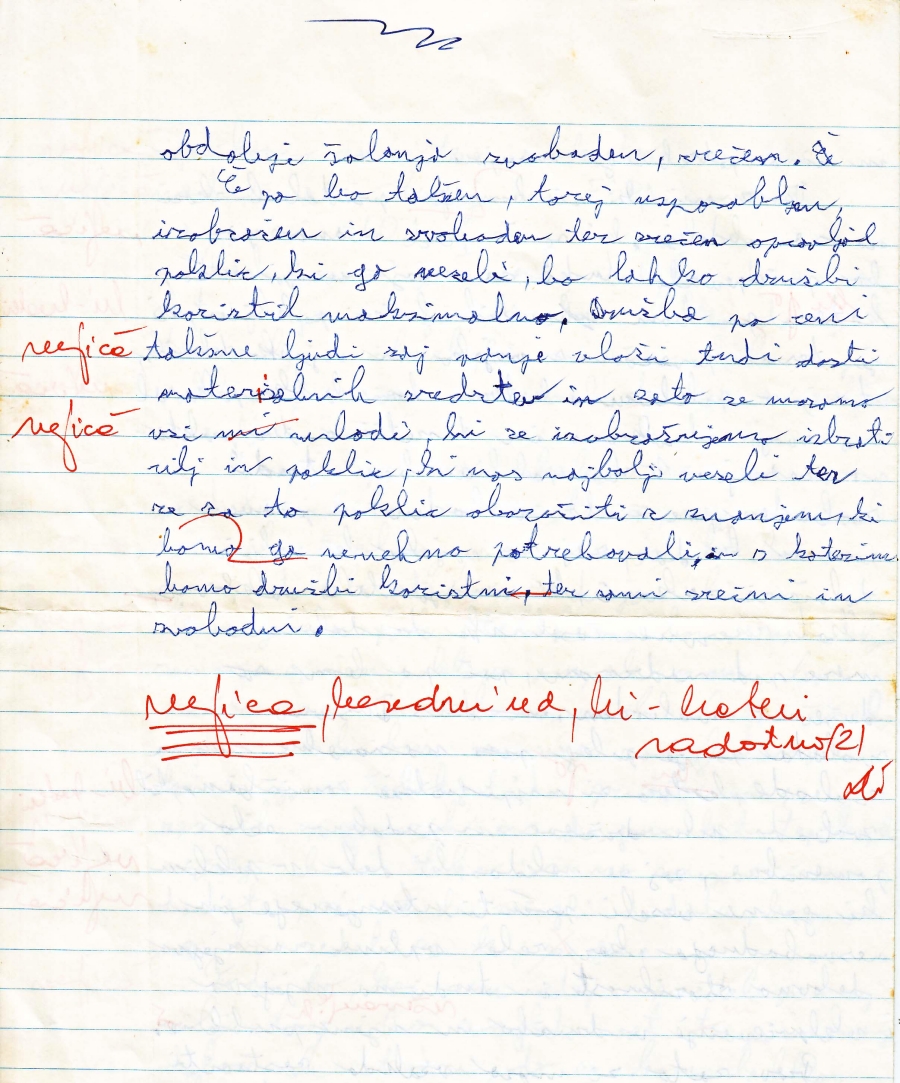 obdobje šolanja svoboden, srečen. Č
Če pa bo takšen, torej usposobljen,
izobražen in svoboden ter srečen opravljal
poklic, ki ga veseli, bo lahko družbi
koristil maksimalno. Družba pa ceni
takšne ljudi saj vanje vloži tudi dosti
materialnih sredstev in zato se moramo
vsi mi mladi, ki se izobražujemo izbrati
cilj in poklic, ki nas najbolj veseli ter
se za to poklic oborožiti z znanjem, ki
bomo ga nenehno potrebovali, in s katerim
bomo družbi koristni, ter sami srečni in
svobodni.
vejica
vejica
vejica, besedni red, ki - kateri
zadostno (2)